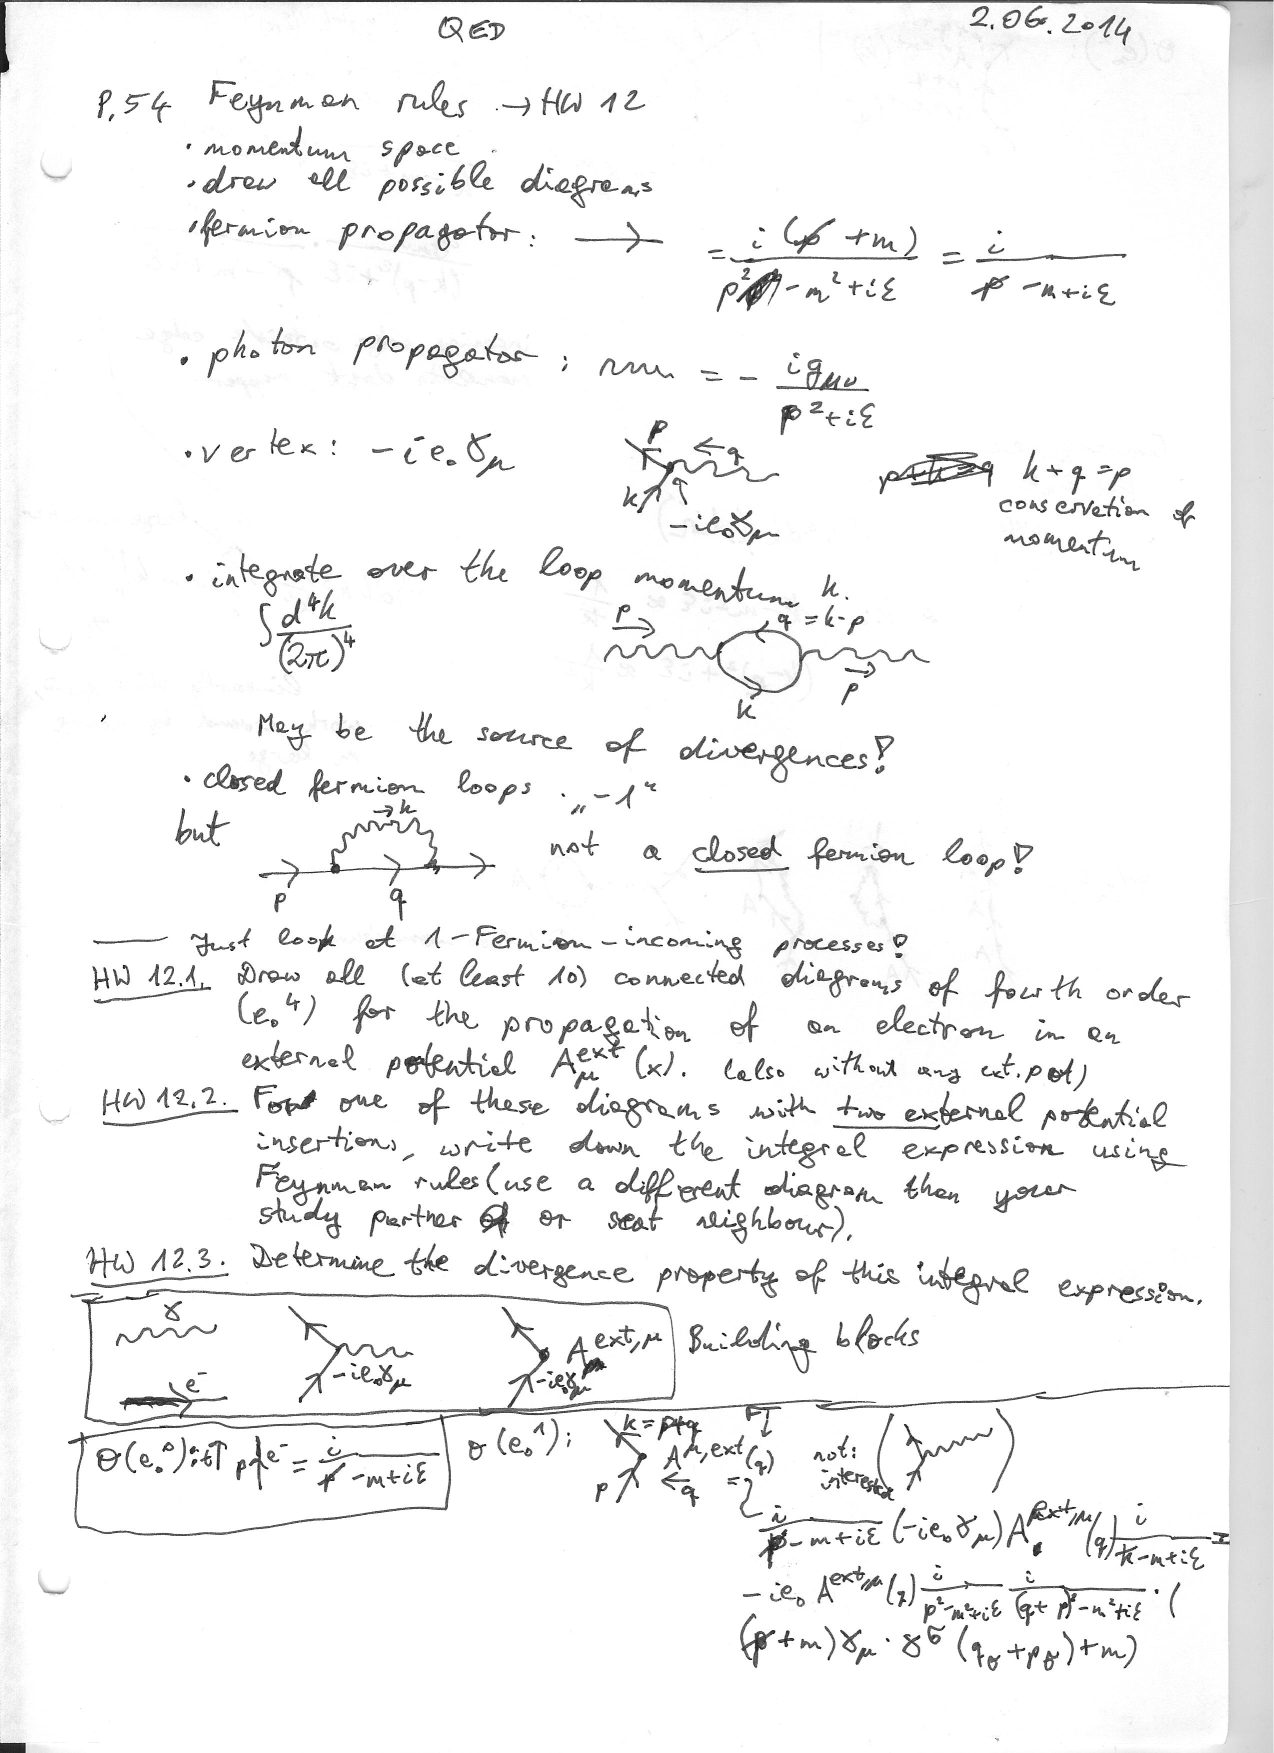 QED 2.06.2014
P.54 Feynman rules → HW 12
· momentum space
· draw all possible diagrams
· fermion propagator: → = i(p̸ + m) / (p² - m² + iε) = i / (p̸ - m + iε)
· photon propagator: = - i g_μν / (p² + iε)
· vertex: - i e₀ γ_μ
p ← q
k
-ie₀γ_μ
k + q = p
conservation of
momentum
· integrate over the loop momentum k.
∫ d⁴k / (2π)⁴
p → q = k-p
k p →
May be the source of divergences!
· closed fermion loops · „-1"
→ k
but not a closed fermion loop!
p q
Just look at 1-Fermion-incoming processes!
HW 12.1. Draw all (at least 10) connected diagrams of fourth order
(e₀⁴) for the propagation of an electron in an
external potential A_μ^ext (x). (also without any ext. pot)
HW 12.2. For one of these diagrams with two external potential
insertions, write down the integral expression using
Feynman rules (use a different diagram than your
study partner or seat neighbour).
HW 12.3. Determine the divergence property of this integral expression.
γ
A^ext,μ
Building blocks
e⁻ -ie₀γ_μ -ie₀γ_μ
O(e₀⁰): it↑ p e⁻ = i / (p̸ - m + iε)
O(e₀¹): k = p+q FT ↓
A^μ,ext (q)
p ← q =
not:
i / (p̸ - m + iε) (-ie₀γ_μ) A^ext,μ (q) i / (k̸ - m + iε) =
-ie₀ A^ext,μ (q) i / (p² - m² + iε) i / ((q + p)² - m² + iε) · (
(p̸ + m) γ_μ · γ^σ (q_σ + p_σ) + m)